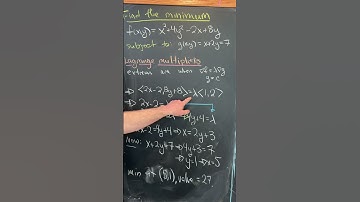 Find the minimum
f(x,y) = x²+4y²-2x+8y
subject to: g(x,y)=x+2y=7
Lagrange multipliers
extrema are when ∇f=λ∇g
g=c
⇒ <2x-2, 8y+8>=λ<1,2>
⇒ 2x-2=
4y+4=λ
x-2=4y+4⇒x=2y+3
Now: x+2y=7 ⇒4y+3=7
⇒y=1⇒x=5
min at (5,1), value=27